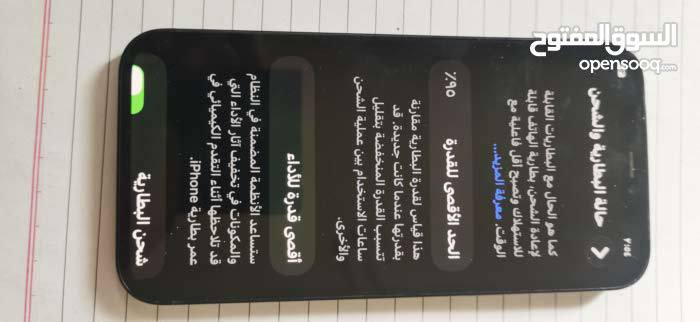 السوق المفتوح
opensooq.com
٢:٥٤
حالة البطارية والشحن
كما هو الحال مع البطاريات القابلة
لإعادة الشحن، بطارية الهاتف قابلة
للاستهلاك وتصبح أقل فاعلية مع
الوقت. معرفة المزيد...
الحد الأقصى للقدرة
٩٥٪
هذا قياس لقدرة البطارية مقارنة
بقدرتها عندما كانت جديدة. قد
تتسبب القدرة المنخفضة بتقليل
ساعات الاستخدام بين عملية الشحن
والأخرى.
أقصى قدرة للأداء
ستساعد الأنظمة المضمنة في النظام
والمكونات في تخفيف آثار الأداء التي
قد تلاحظها أثناء التقدم الكيميائي في
عمر بطارية iPhone.
شحن البطارية